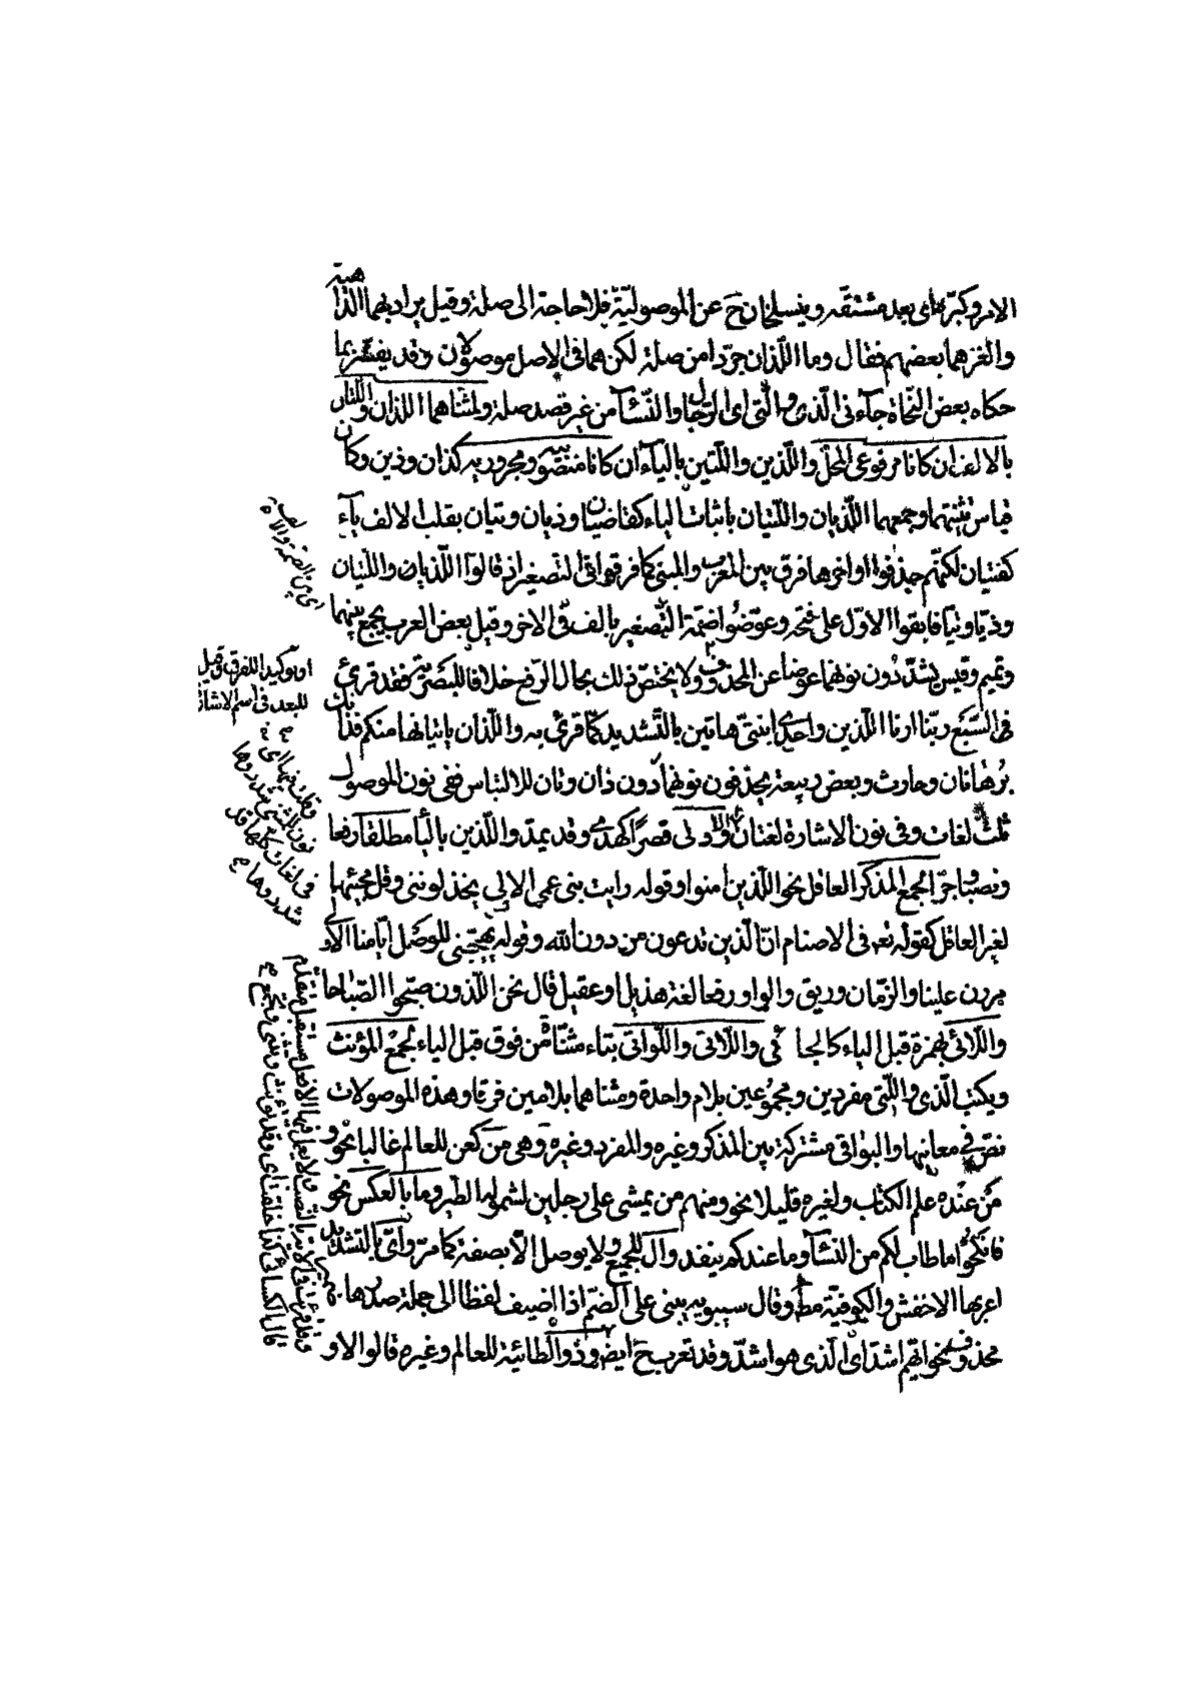 الامر وكبره اى بعد مشتقه وينسلخان ح عن الموصولية فلا حاجة الى صلة وقيل يراد بهما الداهية
والغز هما بعضهم فقال وما اللذان جردا من صلة لكن هما فى الاصل موصولان وقد يفسر بما
حكاه بعض النحاة جآء نى الذى والتى اى الرجال والنسآ من غير قصد صلة ولمثناهما اللذان واللتان
بالالف ان كانا مرفوعى المحل واللذين واللتين باليآء ان كانا منصوبيه ومجروريه كذان وذين وكان
قياس تثنيتهما وجمعهما اللذيان واللتيان باثبات الياء كقاضيان وذيان وتيان بقلب الالف يآء
كفتيان لكنهم حذفوا اواخرها فرق بين المعرب والمبنى كما فرقوا فى التصغير اذ قالوا اللذيان واللتيان
وذيا وتيا فابقوا الاول على فتحه وعوضوا ضمة التصغير بالف فى الاخر وقيل بعض العرب يجمع بينهما
وتميم وقيس يشدّدون نونهما عوضا عن المحذوف ولا يختص ذلك بحال الرفع خلافا للبصريين فقد قرئ
فى السبع ربنا ارنا اللذين واحدى ابنتى هاتين بالتشديد كما قرئ به واللذان ياتيانها منكم فذانك
برهانان وحارث وبعض ربيعة يحذفون نونهما دون ذان وتان للالتباس ففى نون الموصول
ثلث لغات وفى نون الاشارة لغتان والاولى قصرا كهدى وقد يمد واللذين باليآ مطلقا رفعا
ونصبا وجرا لجمع المذكر العاقل نحو الذين امنوا وقوله رايت بنى عمى الالى يخذلوننى وقل مجيئهما
لغير العاقل كقوله تعه فى الاصنام ان الذين تدعون من دون الله وقوله تهيجنى للوصل ايامنا الالى
مررن علينا والزمان وريق والواو رفعا لغة هذيل او عقيل قال نحن اللذون صبحوا الصباحا
واللائى بهمزة قبل الياء كالجائى واللاتى واللواتى بتاء مثناة من فوق قبل الياء لجمع المؤنث
ويكتب الذى والتى مفردين ومجموعين بلام واحدة ومثناهما بلامين فرقا وهذه الموصولات
نص فى معانيها والبواقى مشتركة بين المذكر وغيره والمفرد وغيره وهى من كعن للعالم غالبا نحو و
من عنده علم الكتاب ولغيره قليلا نحو ومنهم من يمشى على رجلين لشموله الطير وما بالعكس نحو
فانكحوا ما طاب لكم من النسآ وما عندكم ينفد وال للجميع ولا يوصل الا بصفة كما مر واى بالتشديد
اعربها الاخفش والكوفية مط وقال سيبويه يبنى على الضم اذا اضيف لفظا الى جملة صدرها
محذوف نحو ايهم اشد اى الذى هو اشد وقد تعرب ح ايض وذو الطائية للعالم وغيره قالوا الاو
اى بين الضمة والالف
او توكيدا للفرق وقيل
للبعد فى اسم الاشارة
نون المثنى شددوها
فى لغات كلها قل
شددوها